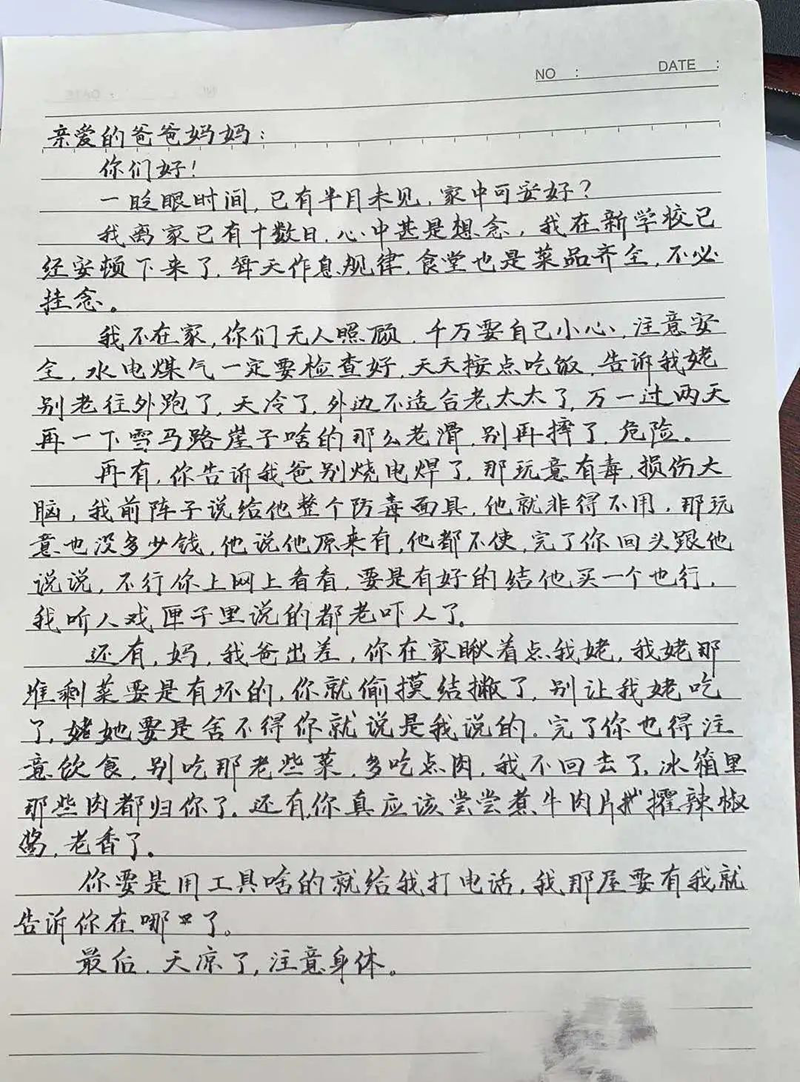 NO : DATE :
亲爱的爸爸妈妈:
你们好!
一眨眼时间,已有半月未见,家中可安好?
我离家已有十数日,心中甚是想念,我在新学校已
经安顿下来了,每天作息规律,食堂也是菜品齐全,不必
挂念。
我不在家,你们无人照顾,千万要自己小心,注意安
全,水电煤气一定要检查好,天天按点吃饭,告诉我姥
别老往外跑了,天冷了,外边不适合老太太了,万一过两天
再一下雪马路崖子啥的那么老滑,别再摔了,危险。
再有,你告诉我爸别烧电焊了,那玩意有毒,损伤大
脑,我前阵子说给他整个防毒面具,他就非得不用,那玩
意也没多少钱,他说他原来有,他都不使,完了你回头跟他
说说,不行你上网上看看,要是有好的结他买一个也行,
我听人戏匣子里说的都老吓人了。
还有,妈,我爸出差,你在家瞅着点我姥,我姥那
堆剩菜要是有坏的,你就偷摸结撇了,别让我姥吃
了,姥她要是舍不得你就说是我说的。完了你也得注
意饮食,别吃那老些菜,多吃点肉,我不回去了,冰箱里
那些肉都归你了,还有,你真应该尝尝煮牛肉片擢辣椒
酱,老香了。
你要是用工具啥的就给我打电话,我那屋要有我就
告诉你在哪了。
最后,天凉了,注意身体。